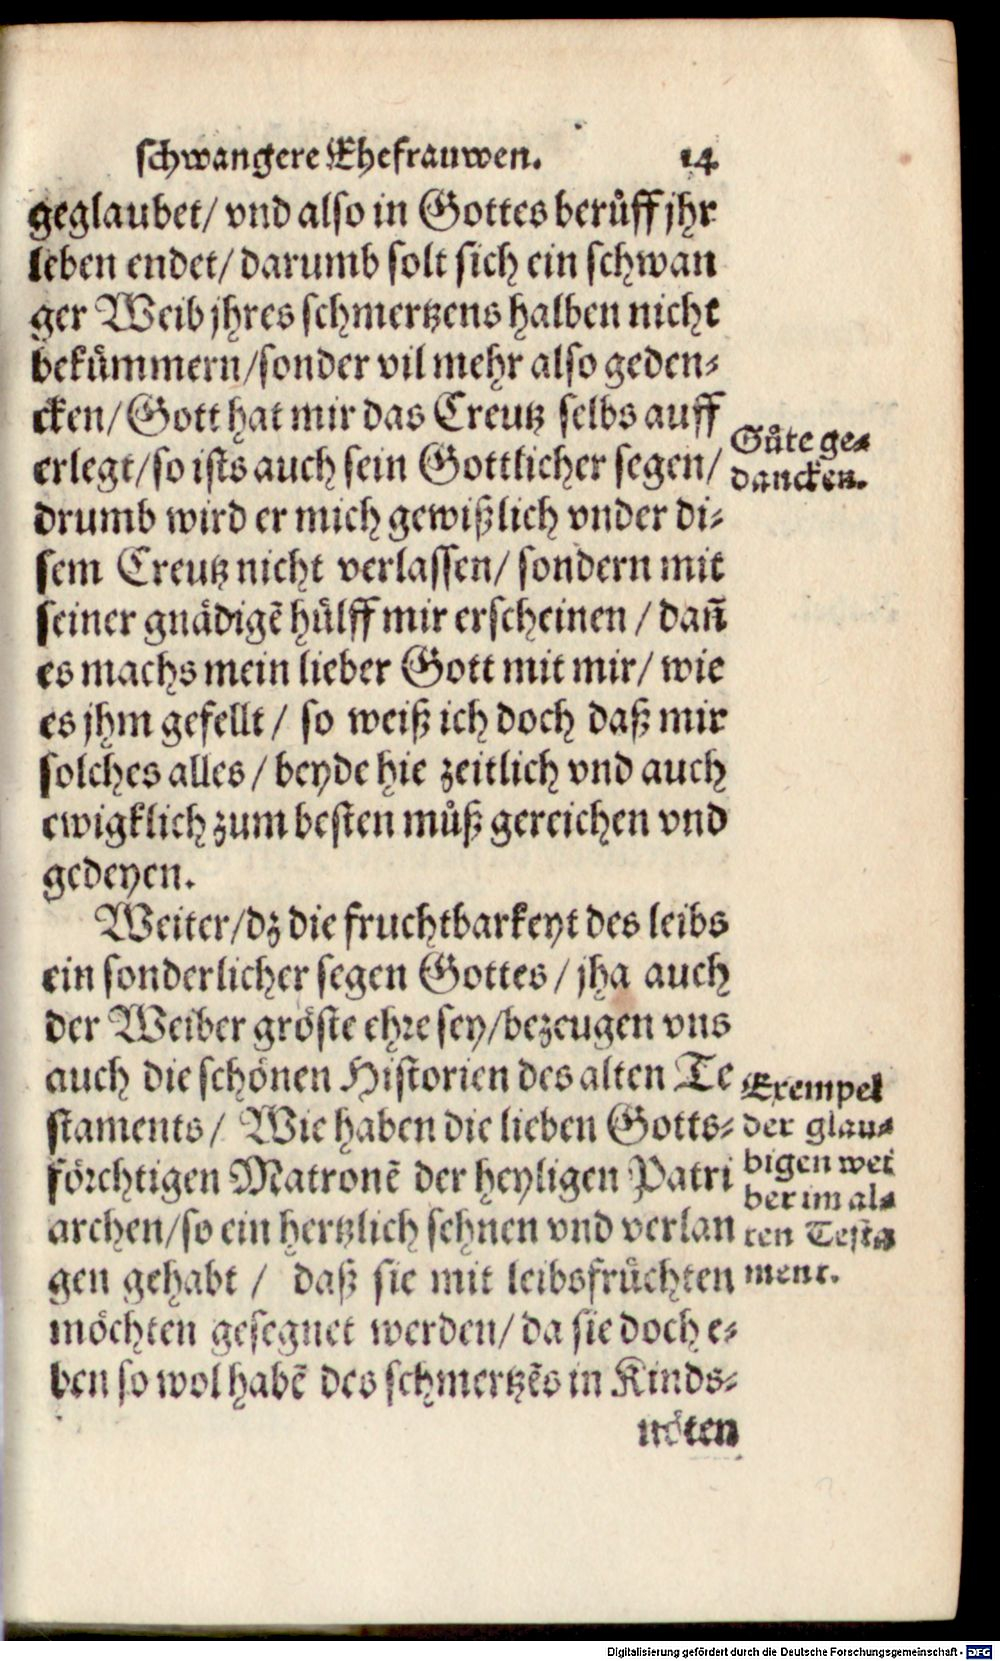 schwangere Ehefrauwen. 14
geglaubet/ vnd also in Gottes berůff jhr
leben endet/ darumb solt sich ein schwan
ger Weib jhres schmertzens halben nicht
bekümmern/sonder vil mehr also geden⸗
cken/ Gott hat mir das Creutz selbs auff
erlegt/so ists auch sein Gottlicher segen/
drumb wird er mich gewißlich vnder di⸗
sem Creutz nicht verlassen/ sondern mit
seiner gnädigẽ hülff mir erscheinen / dañ
es machs mein lieber Gott mit mir/ wie
es jhm gefellt / so weiß ich doch daß mir
solches alles / beyde hie zeitlich vnd auch
ewigklich zum besten můß gereichen vnd
gedeyen.
Güte ge⸗
dancken.
Weiter/dz die fruchtbarkeyt des leibs
ein sonderlicher segen Gottes / jha auch
der Weiber gröste ehre sey/bezeugen vns
auch die schönen Historien des alten Te
staments / Wie haben die lieben Gotts⸗
förchtigen Matronẽ der heyligen Patri
archen/so ein hertzlich sehnen vnd verlan
gen gehabt / daß sie mit leibsfrüchten
möchten gesegnet werden/ da sie doch e⸗
ben so wol habẽ des schmertzẽs in Kinds⸗
nöten
Exempel
der glau⸗
bigen wei
ber im al⸗
ten Testa
ment.
Digitalisierung gefördert durch die Deutsche Forschungsgemeinschaft - DFG